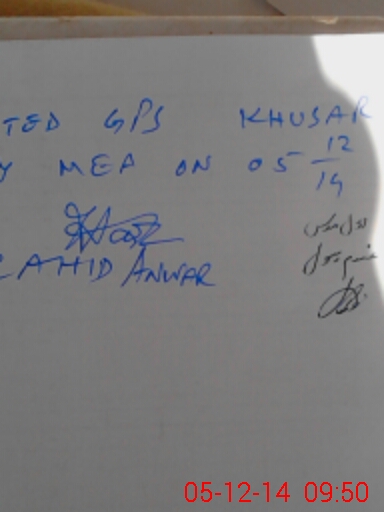 TED GPS KHUSAR
Y MEA ON 05 12/14
ZAHID ANWAR
05-12-14 09:50